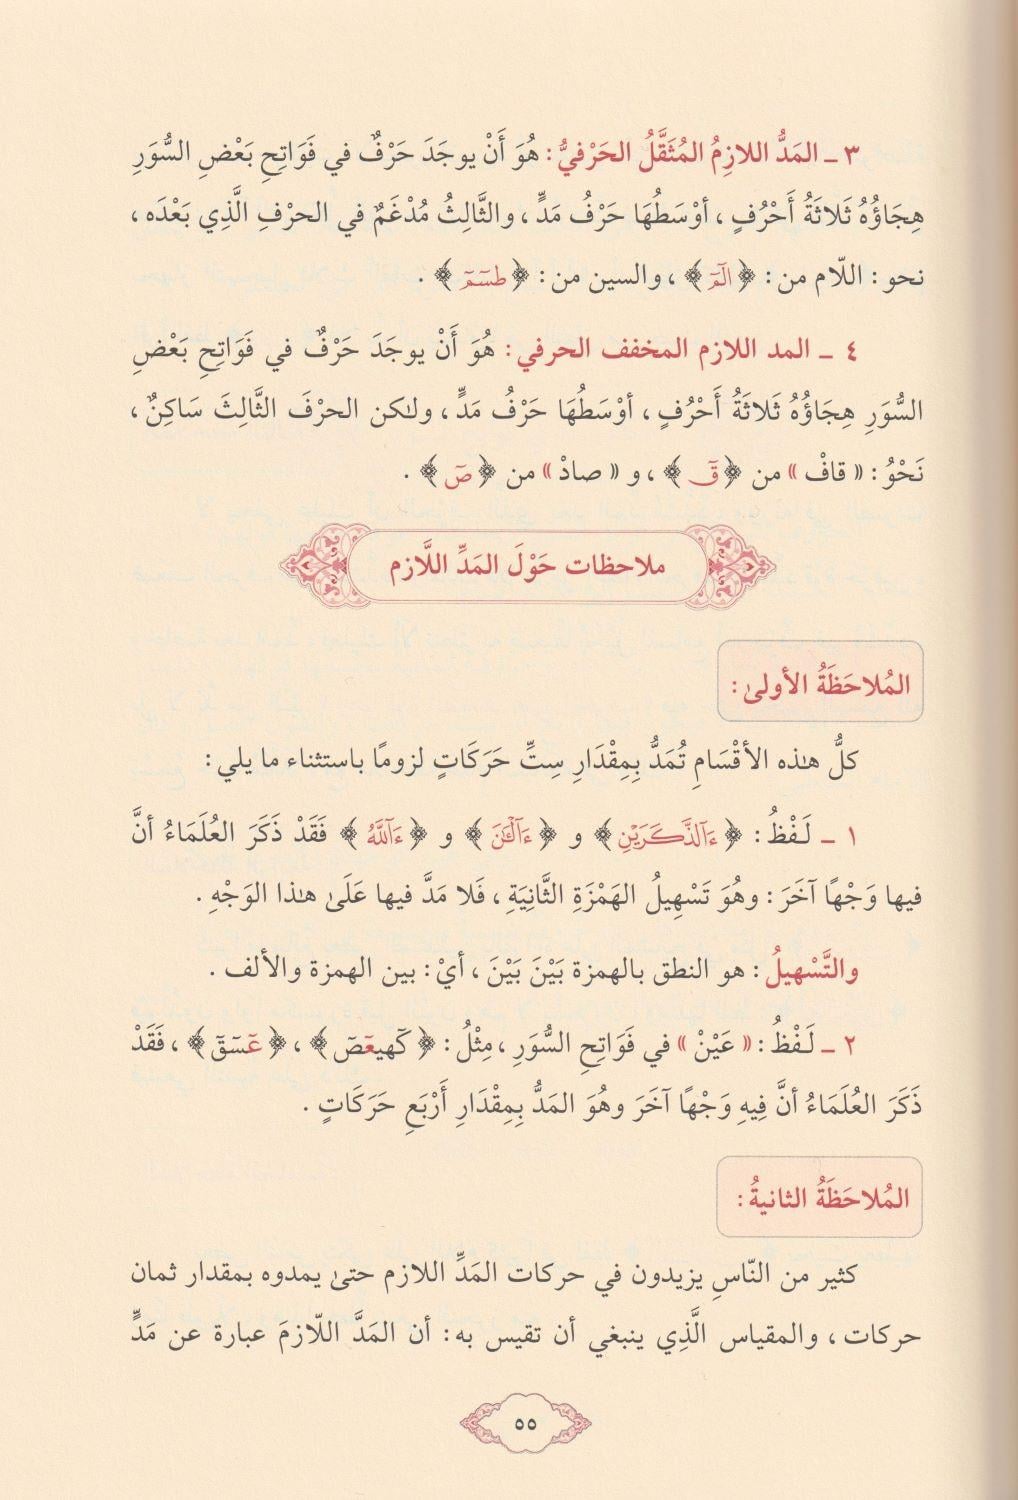 ٣ ـ المَدُّ اللازِمُ المُثَقَّلُ الحَرْفيُّ: هُوَ أَنْ يوجَدَ حَرْفٌ في فَوَاتِحِ بَعْضِ السُّوَرِ
هِجَاؤُهُ ثَلاثَةُ أَحْرُفٍ، أوْسَطُهَا حَرْفُ مَدٍّ، والثَّالِثُ مُدْغَمٌ في الحرْفِ الَّذِي بَعْدَه،
نحو: اللّام من: ﴿الٓمٓ﴾، والسين من: ﴿طسٓمٓ﴾.
٤ ـ المد اللازم المخفف الحرفي: هُوَ أَنْ يوجَدَ حَرْفٌ في فَوَاتِحِ بَعْضِ
السُّوَرِ هِجَاؤُهُ ثَلاثَةُ أَحْرُفٍ، أوْسَطُهَا حَرْفُ مَدٍّ، ولٰكن الحرْفَ الثَّالِثَ سَاكِنٌ،
نَحْوُ: «قافْ» من ﴿قٓ﴾، و «صادْ» من ﴿صٓ﴾.
ملاحظات حَوْلَ المَدِّ اللَّازم
المُلاحَظَةُ الأولىٰ:
كلُّ هٰذه الأقْسَامِ تُمَدُّ بِمِقْدَارِ سِتِّ حَرَكَاتٍ لزومًا باستثناء ما يلي:
١ ـ لَفْظُ: ﴿ءَآلذَّكَرَيْنِ﴾ و ﴿ءَآلْـَٰنَ﴾ و ﴿ءَآللَّهُ﴾ فَقَدْ ذَكَرَ العُلَمَاءُ أنَّ
فيها وَجْهًا آخَرَ: وهُوَ تَسْهِيلُ الهَمْزَةِ الثَّانِيَةِ، فَلا مَدَّ فيها عَلَىٰ هٰذا الوَجْهِ.
والتَّسْهيلُ: هو النطق بالهمزة بَيْنَ بَيْنَ، أيْ: بين الهمزة والألف.
٢ ـ لَفْظُ: «عَيْنْ» في فَوَاتِحِ السُّوَرِ، مِثْلُ: ﴿كٓهيعٓصٓ﴾، ﴿عٓسٓقٓ﴾، فَقَدْ
ذَكَرَ العُلَمَاءُ أنَّ فِيهِ وَجْهًا آخَرَ وهُوَ المَدُّ بِمِقْدَارِ أَرْبَعِ حَرَكَاتٍ.
المُلاحَظَةُ الثانيةُ:
كثير من النّاسِ يزيدون في حركات المَدِّ اللازم حتىٰ يمدوه بمقدار ثمان
حركات، والمقياس الَّذِي ينبغي أن تقيس به: أن المَدَّ اللّازمَ عبارة عن مَدٍّ
٥٥